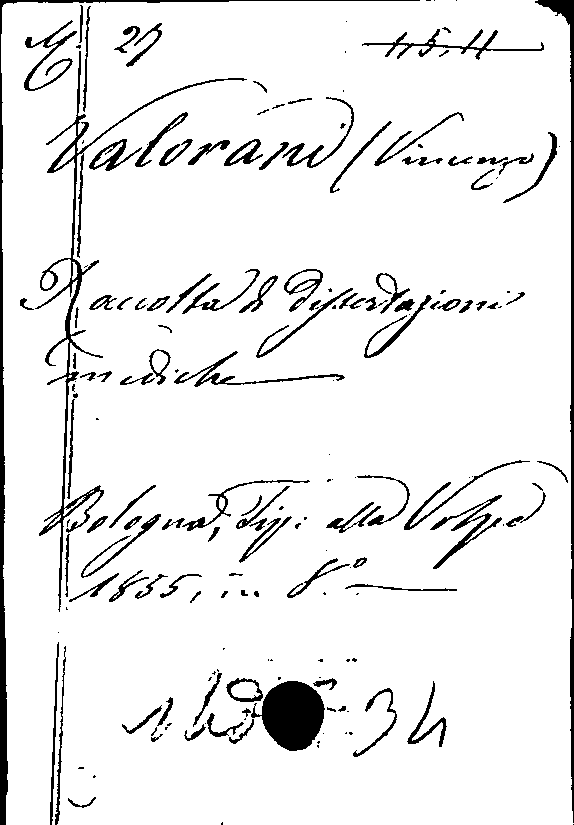 27 1,5,11
Valorani (Vincenzo)
Raccolta di Dissertazioni
mediche
Bologna, Tip: alla Volpe
1855, in 8.º
34